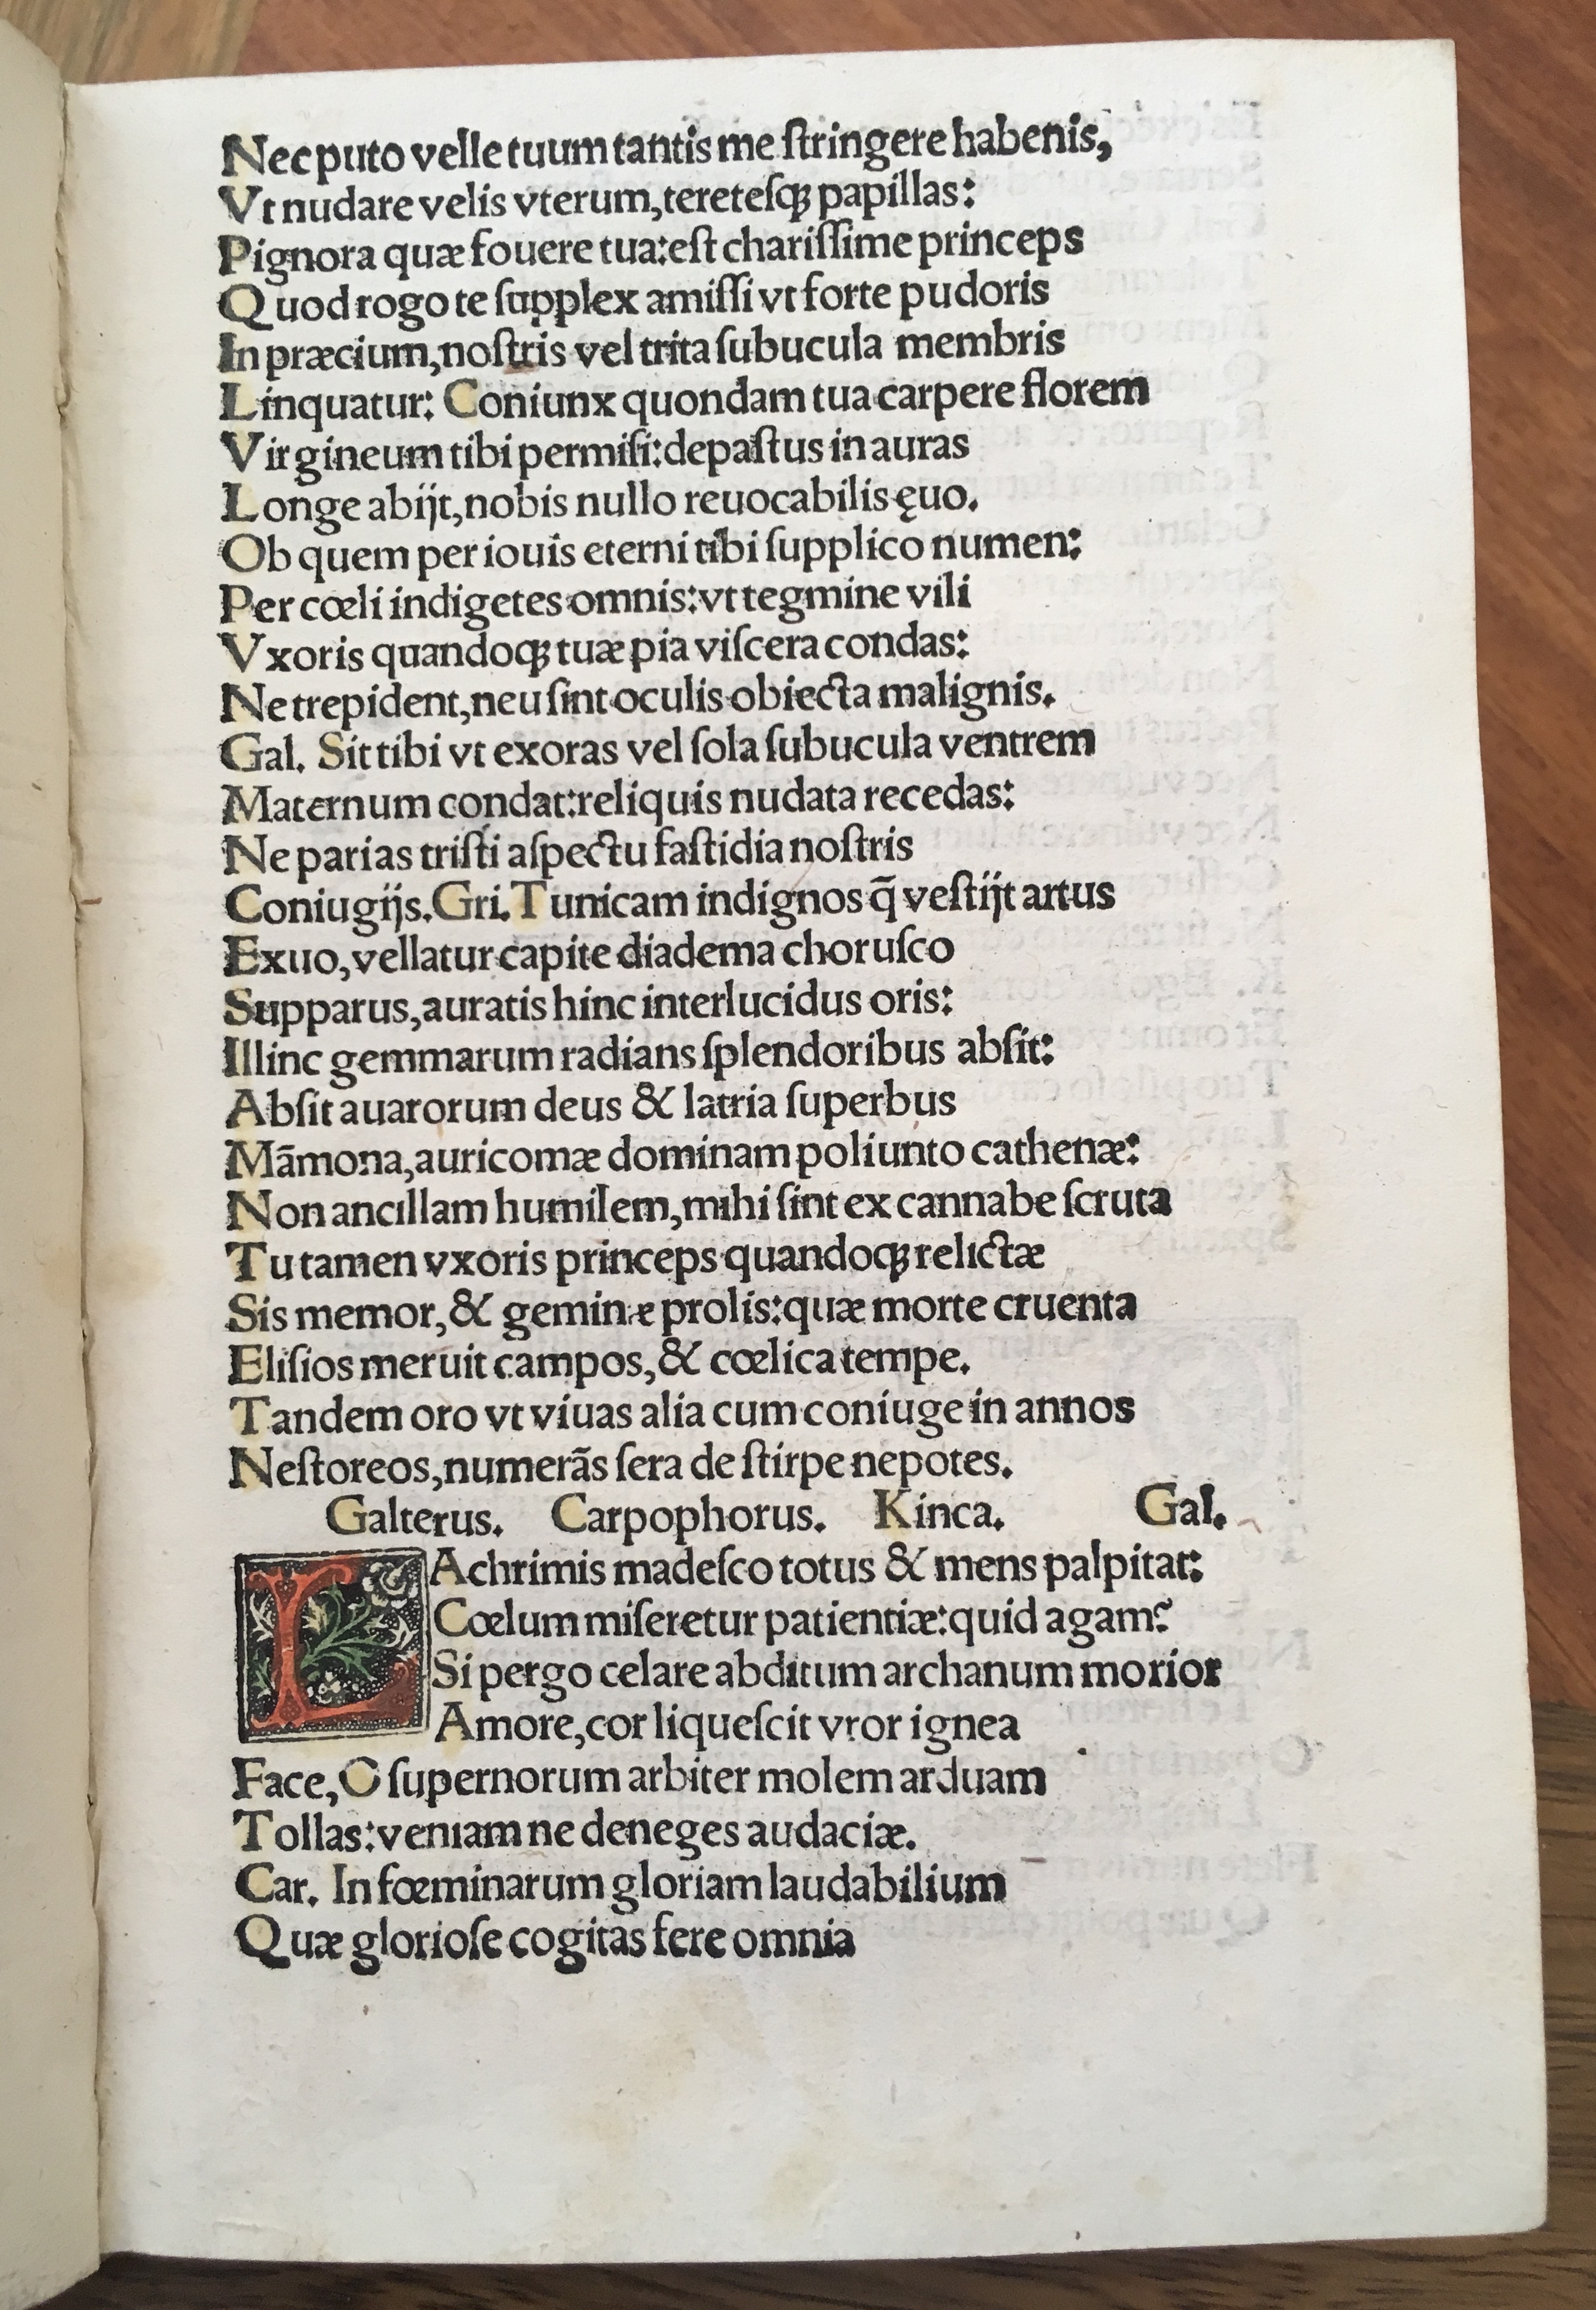 Nec puto velle tuum tantis me ſtringere habenis,
Vt nudare velis vterum,teretesq; papillas:
Pignora quæ fouere tua:eſt chariſſime princeps
Quod rogo te ſupplex amiſſi vt forte pudoris
In præcium,noſtris vel trita ſubucula membris
Linquatur: Coniunx quondam tua carpere florem
Virgineum tibi permiſi:depaſtus in auras
Longe abijt,nobis nullo reuocabilis ęuo.
Ob quem per iouis eterni tibi ſupplico numen:
Per cœli indigetes omnis:vt tegmine vili
Vxoris quandoq; tuæ pia viſcera condas:
Ne trepident,neu ſint oculis obiecta malignis.
Gal. Sit tibi vt exoras vel ſola ſubucula ventrem
Maternum condat:reliquis nudata recedas:
Ne parias triſti aſpectu faſtidia noſtris
Coniugijs.Gri.Tunicam indignos q̃ veſtijt artus
Exuo,vellatur capite diadema choruſco
Supparus,auratis hinc interlucidus oris:
Illinc gemmarum radians ſplendoribus abſit:
Abſit auarorum deus & latria ſuperbus
Mãmona,auricomæ dominam poliunto cathenæ:
Non ancillam humilem,mihi ſint ex cannabe ſcruta
Tu tamen vxoris princeps quandoq; relictæ
Sis memor,& geminæ prolis:quæ morte cruenta
Eliſios meruit campos,& cœlica tempe.
Tandem oro vt viuas alia cum coniuge in annos
Neſtoreos,numerãs ſera de ſtirpe nepotes.
Galterus. Carpophorus. Kinca. Gal.
LAchrimis madeſco totus & mens palpitat:
Cœlum miſeretur patientiæ:quid agam?
Si pergo celare abditum archanum morior
Amore,cor liqueſcit vror ignea
Face,O ſupernorum arbiter molem arduam
Tollas:veniam ne deneges audaciæ.
Car. In fœminarum gloriam laudabilium
Quæ glorioſe cogitas fere omnia